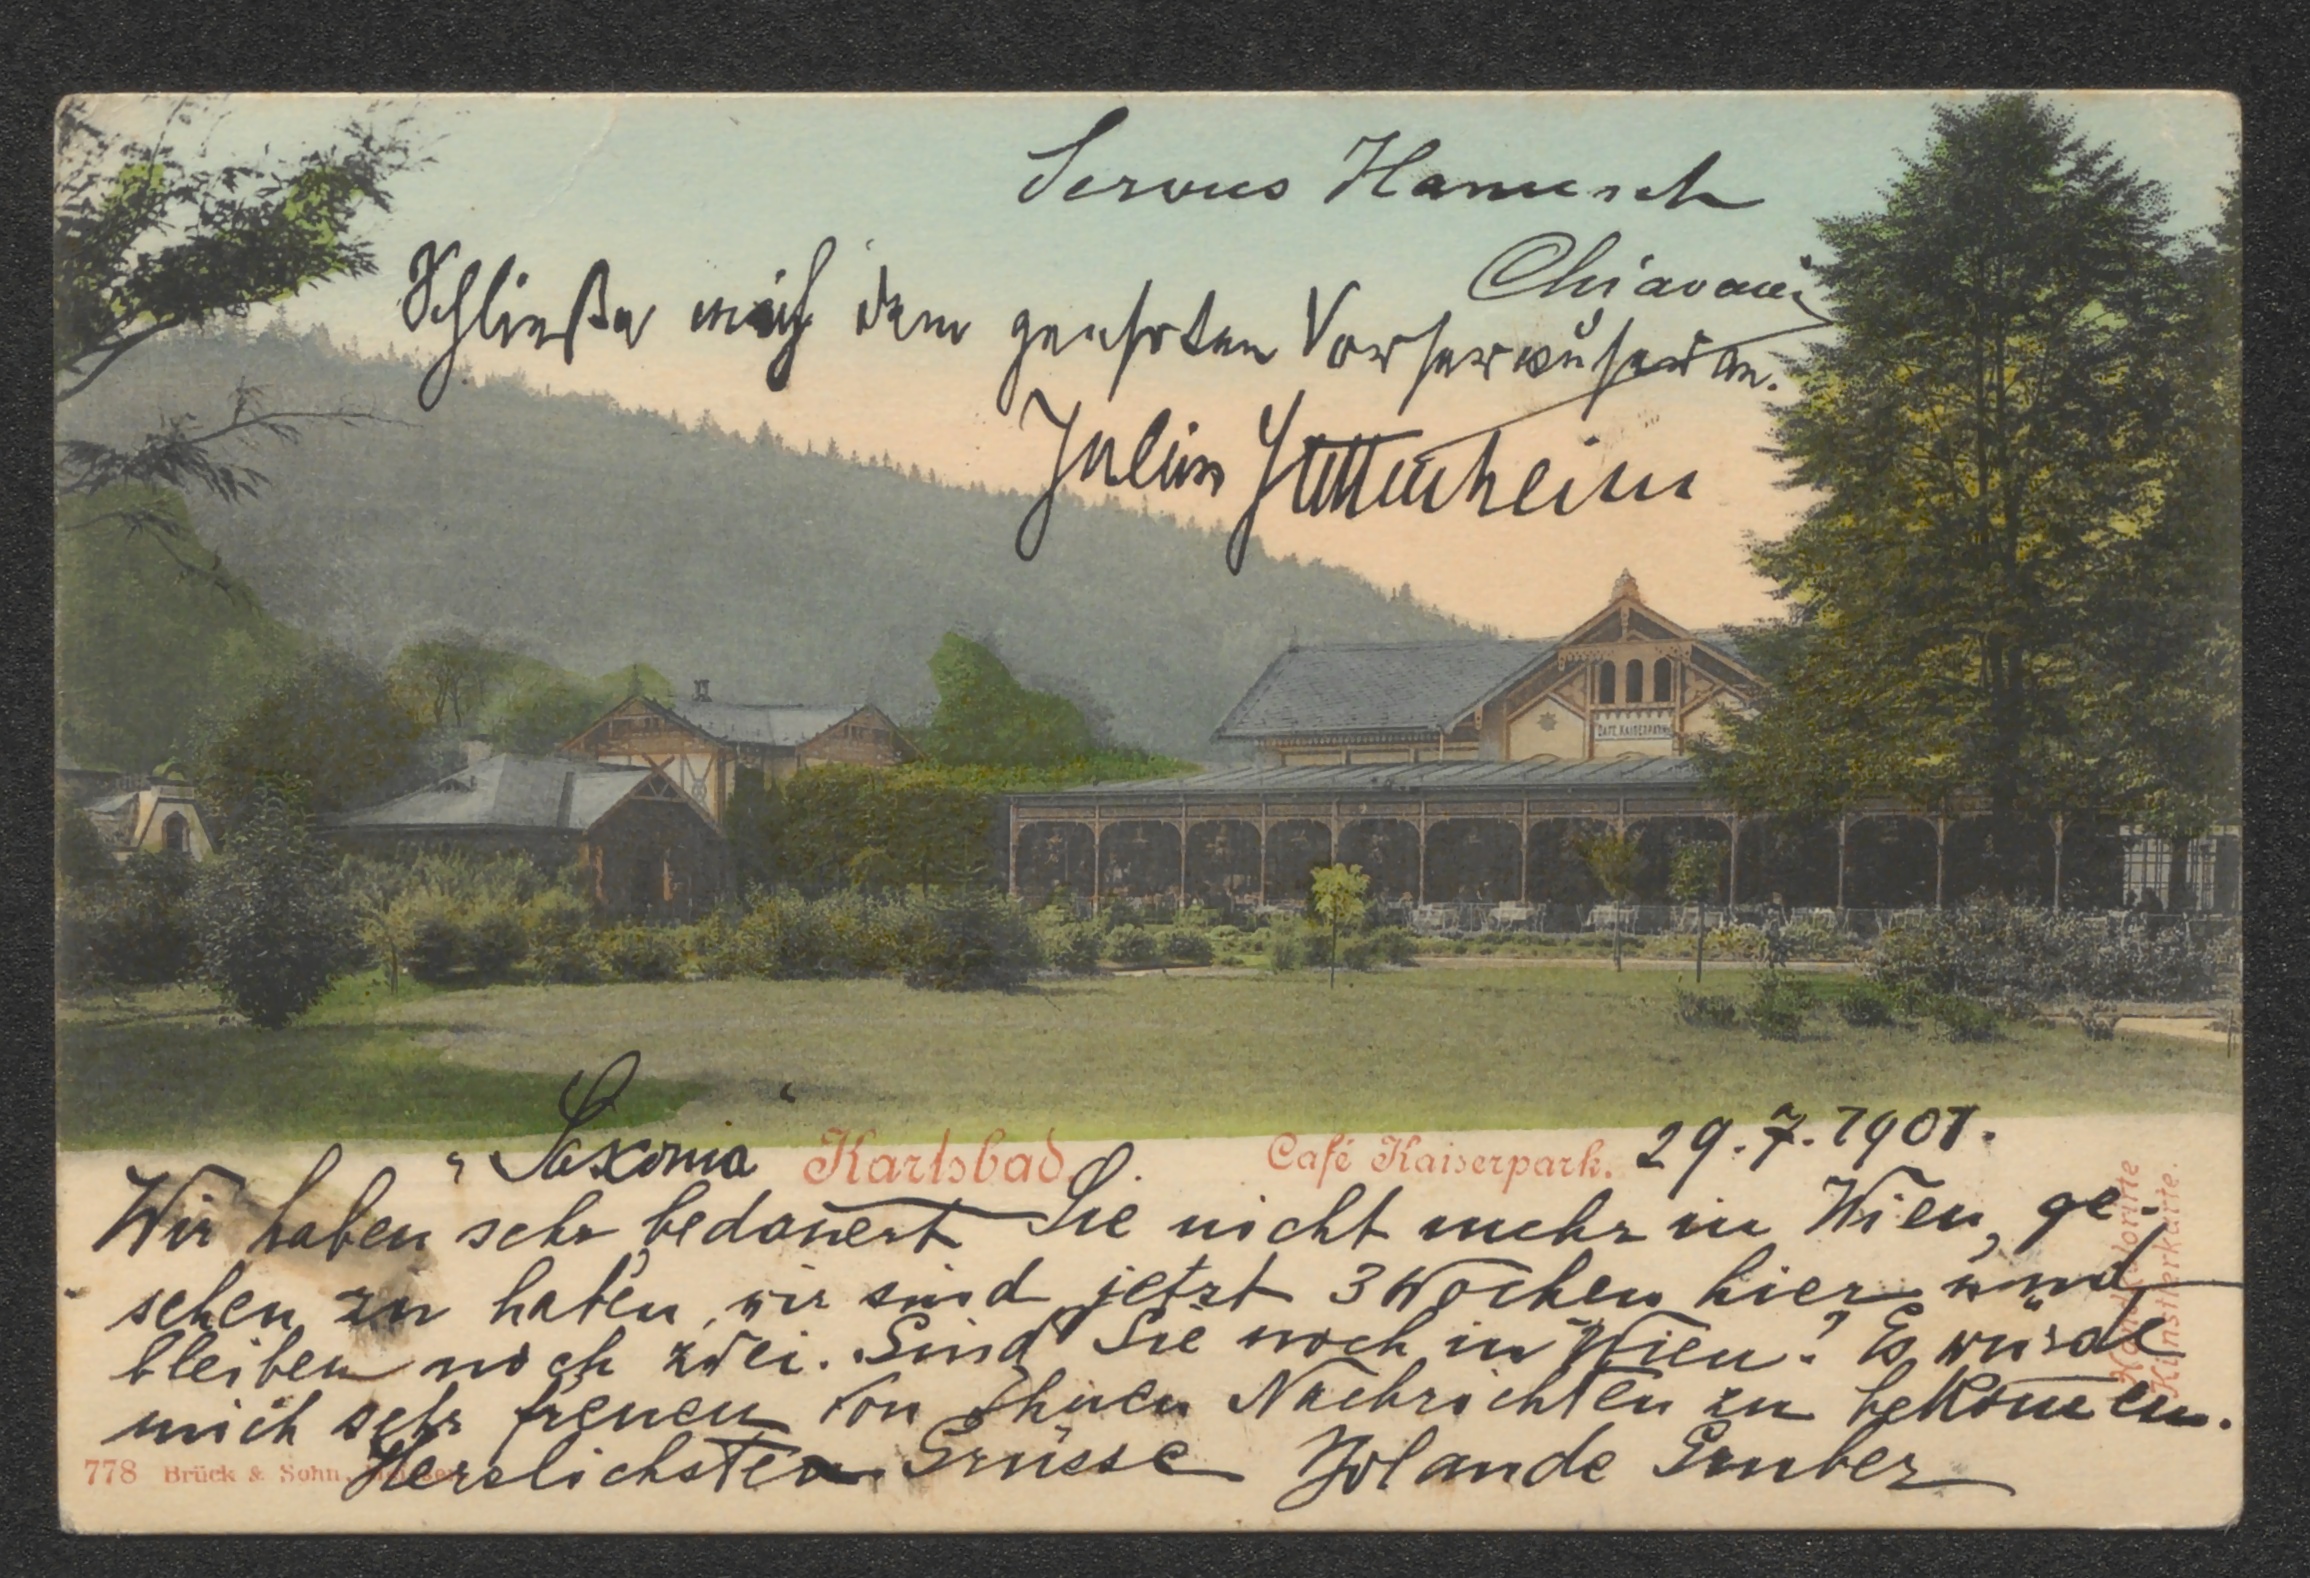 Servus Hanusch
Chiavacci
Schließe mich dem geehrten Vorher an.
Julius Stettenheim
CAFE KAISERPARK
„Saxonia“ Karlsbad, Café Kaiserpark. 29.7.1901.
Wir haben sehr bedauert Sie nicht mehr in Wien, ge-
sehen zu haben, wir sind jetzt 3 Wochen hier und
bleiben noch zwei. Sind Sie noch in Wien? Es würde
mich sehr freuen von Ihnen Nachrichten zu bekom̄en.
Herzlichsten Grüsse Yolande Gruber
778 Brück & Sohn, Meissen
Handkolorirte
Künstlerkarte.